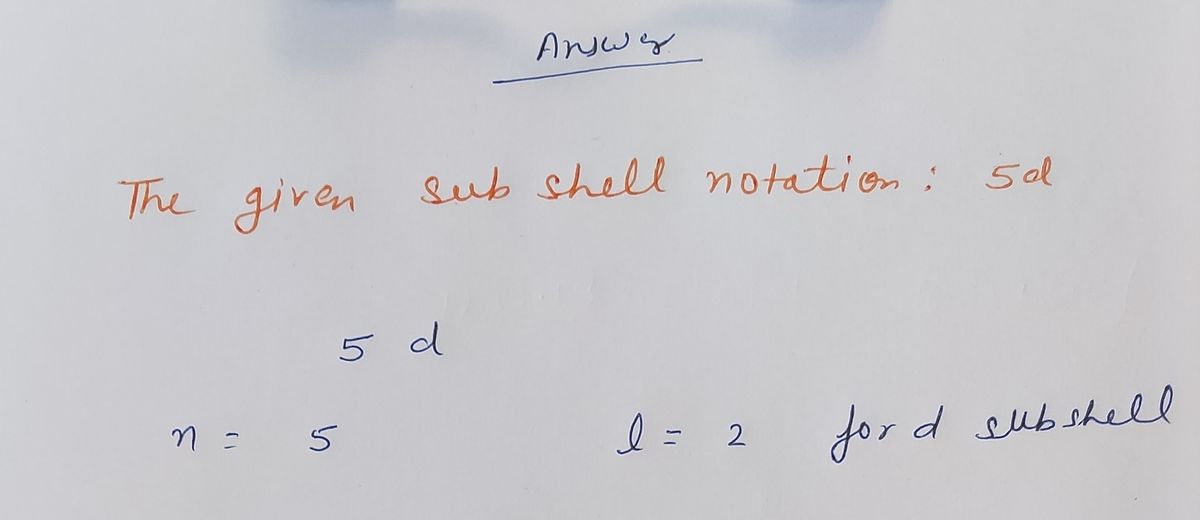 Answer
The given sub shell notation : 5d
5 d
n = 5 l = 2 for d subshell